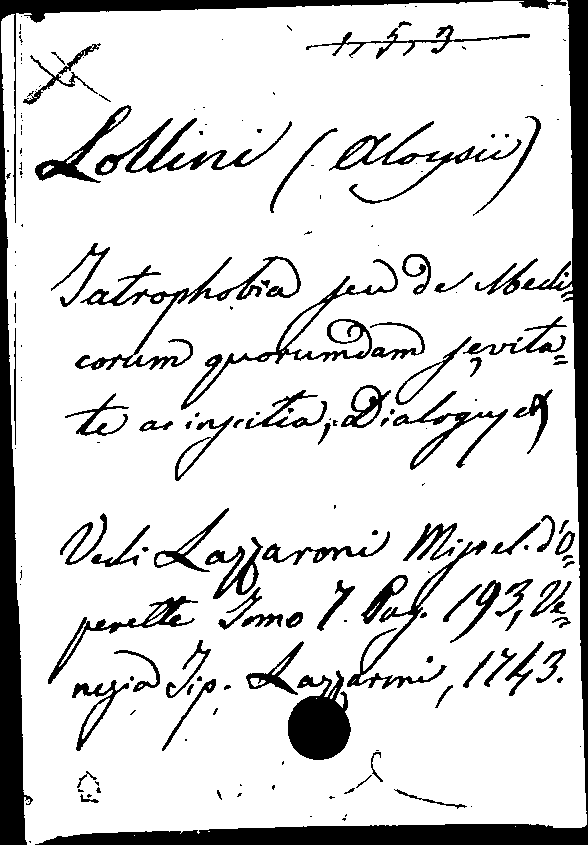 1, 5, 3
Lollini (Aloysii)
Iatrophobia seu de Medi=
corum quorumdam sęvita=
te ac inscitia, Dialogus
Vedi Lazzaroni Miscel. d'O=
perette Tomo 7. Pag. 193, Ve=
nezia Tip. Lazzaroni, 1743.